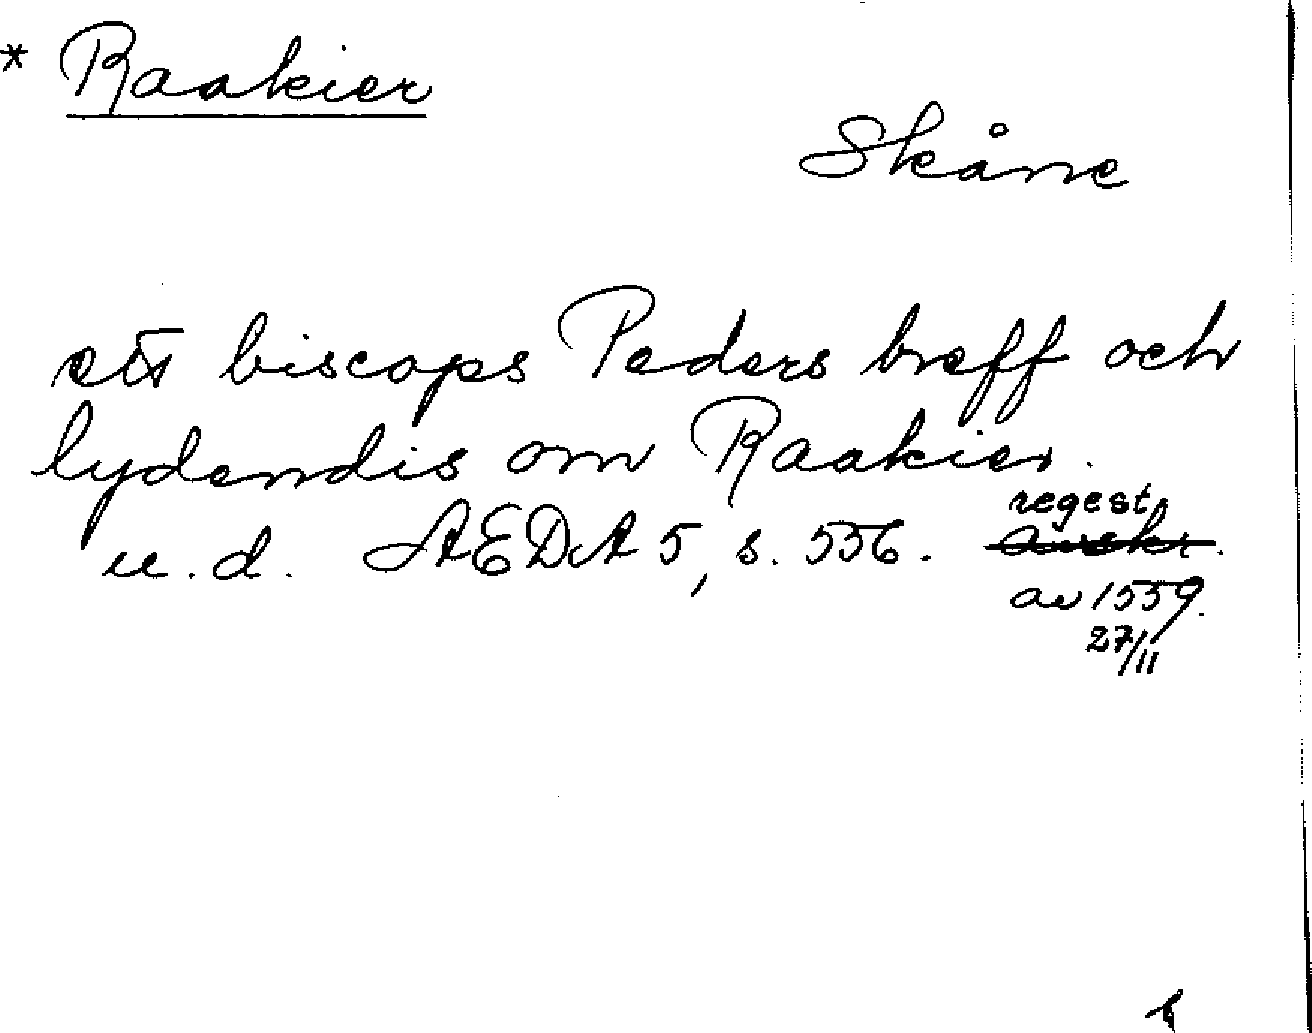 * Raakier
Skåne
ett biscops Peders breff och
lydendis om Raakier.
u.d. AEDA 5, s. 556. regest
avskr.
av 1559.
27/11